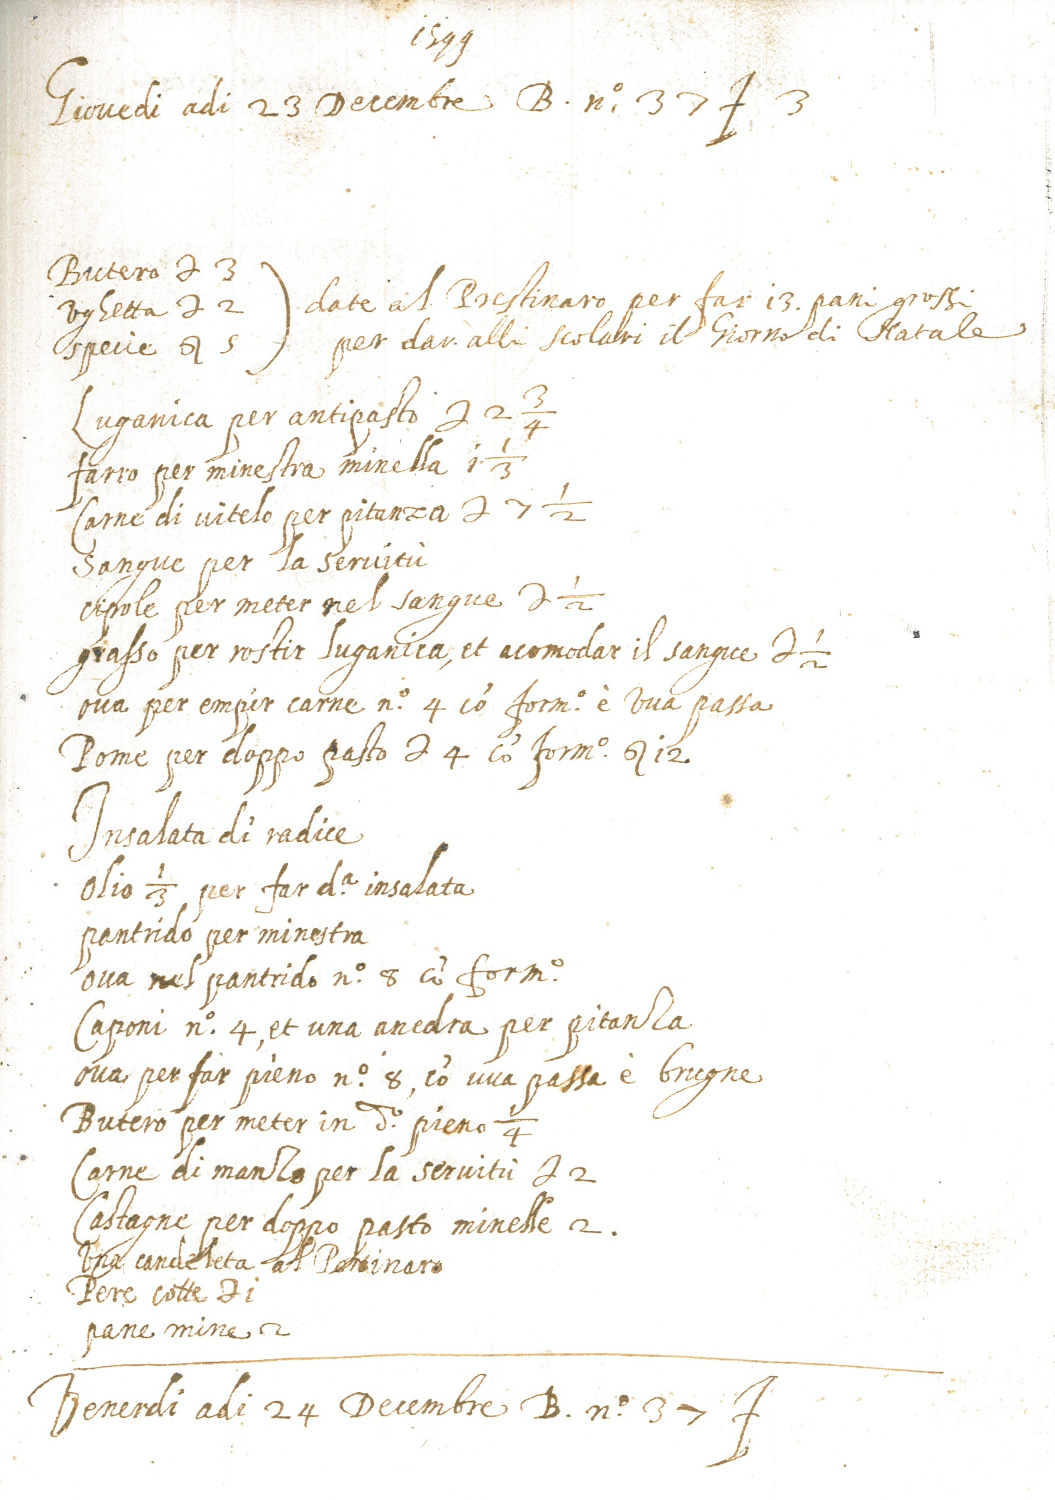 1599
Giouedi adi 23 Decembre B. n.º 37 f 3
Butero 3
vghetta 2
specie 5
date al Prestinaro per far 13. pani grossi
per dar alli scolari il Giorno di Natale
Luganica per antipasto 2 3/4
farro per minestra minella i 1/3
Carne di uitelo per pitanza 7 1/2
Sangue per la seruitù
cipole per meter nel sangue 1/2
grasso per rostir luganica, et acomodar il sangue 1/2
oua per empir carne n.º 4 cõ form.º è vua passa
Pome per doppo pasto 4 cõ form.º 12
Insalata di radice
olio 1/3 per far d.ª insalata
pantrido per minestra
oua nel pantrido n.º 8 cõ form.º
Caponi n.º 4, et una anedra per pitanza
oua per far pieno n.º 8, cõ uua passa è brugne
Butero per meter in d.º pieno 1/4
Carne di manzo per la seruitù 2
Castagne per doppo pasto minelle 2.
Vna candeleta al Prestinaro
Pere cotte i
pane mine 2
Venerdi adi 24 Decembre B. n.º 37 f